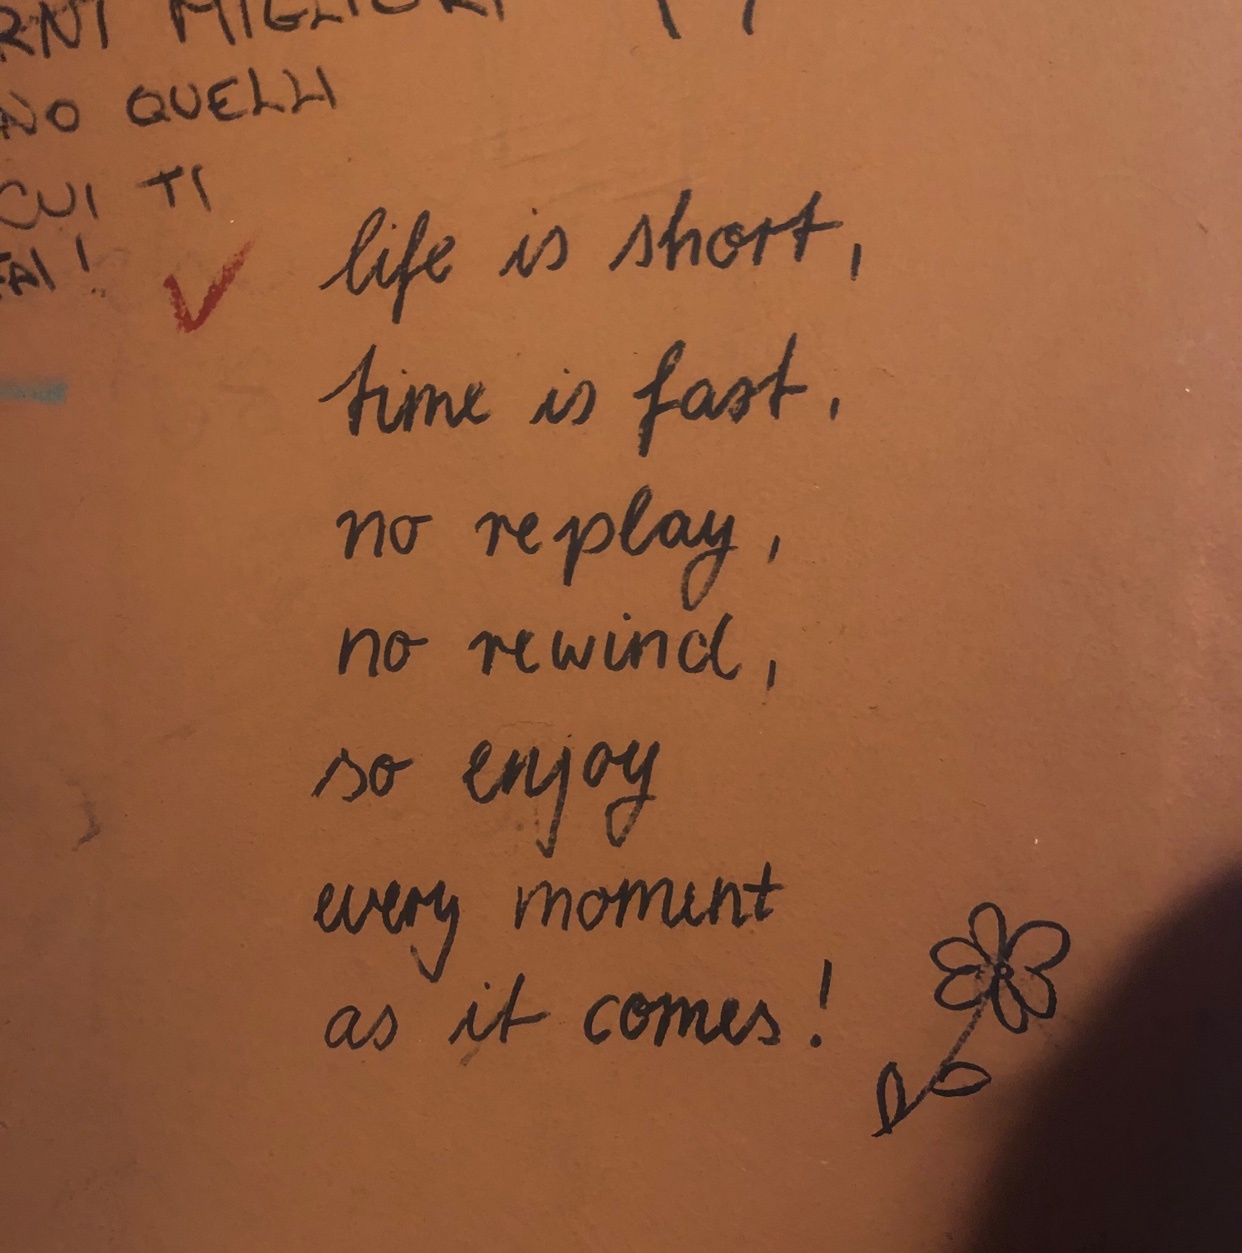 MIGLIORI
QUELLI
CUI TI
life is short,
time is fast,
no replay,
no rewind,
so enjoy
every moment
as it comes!